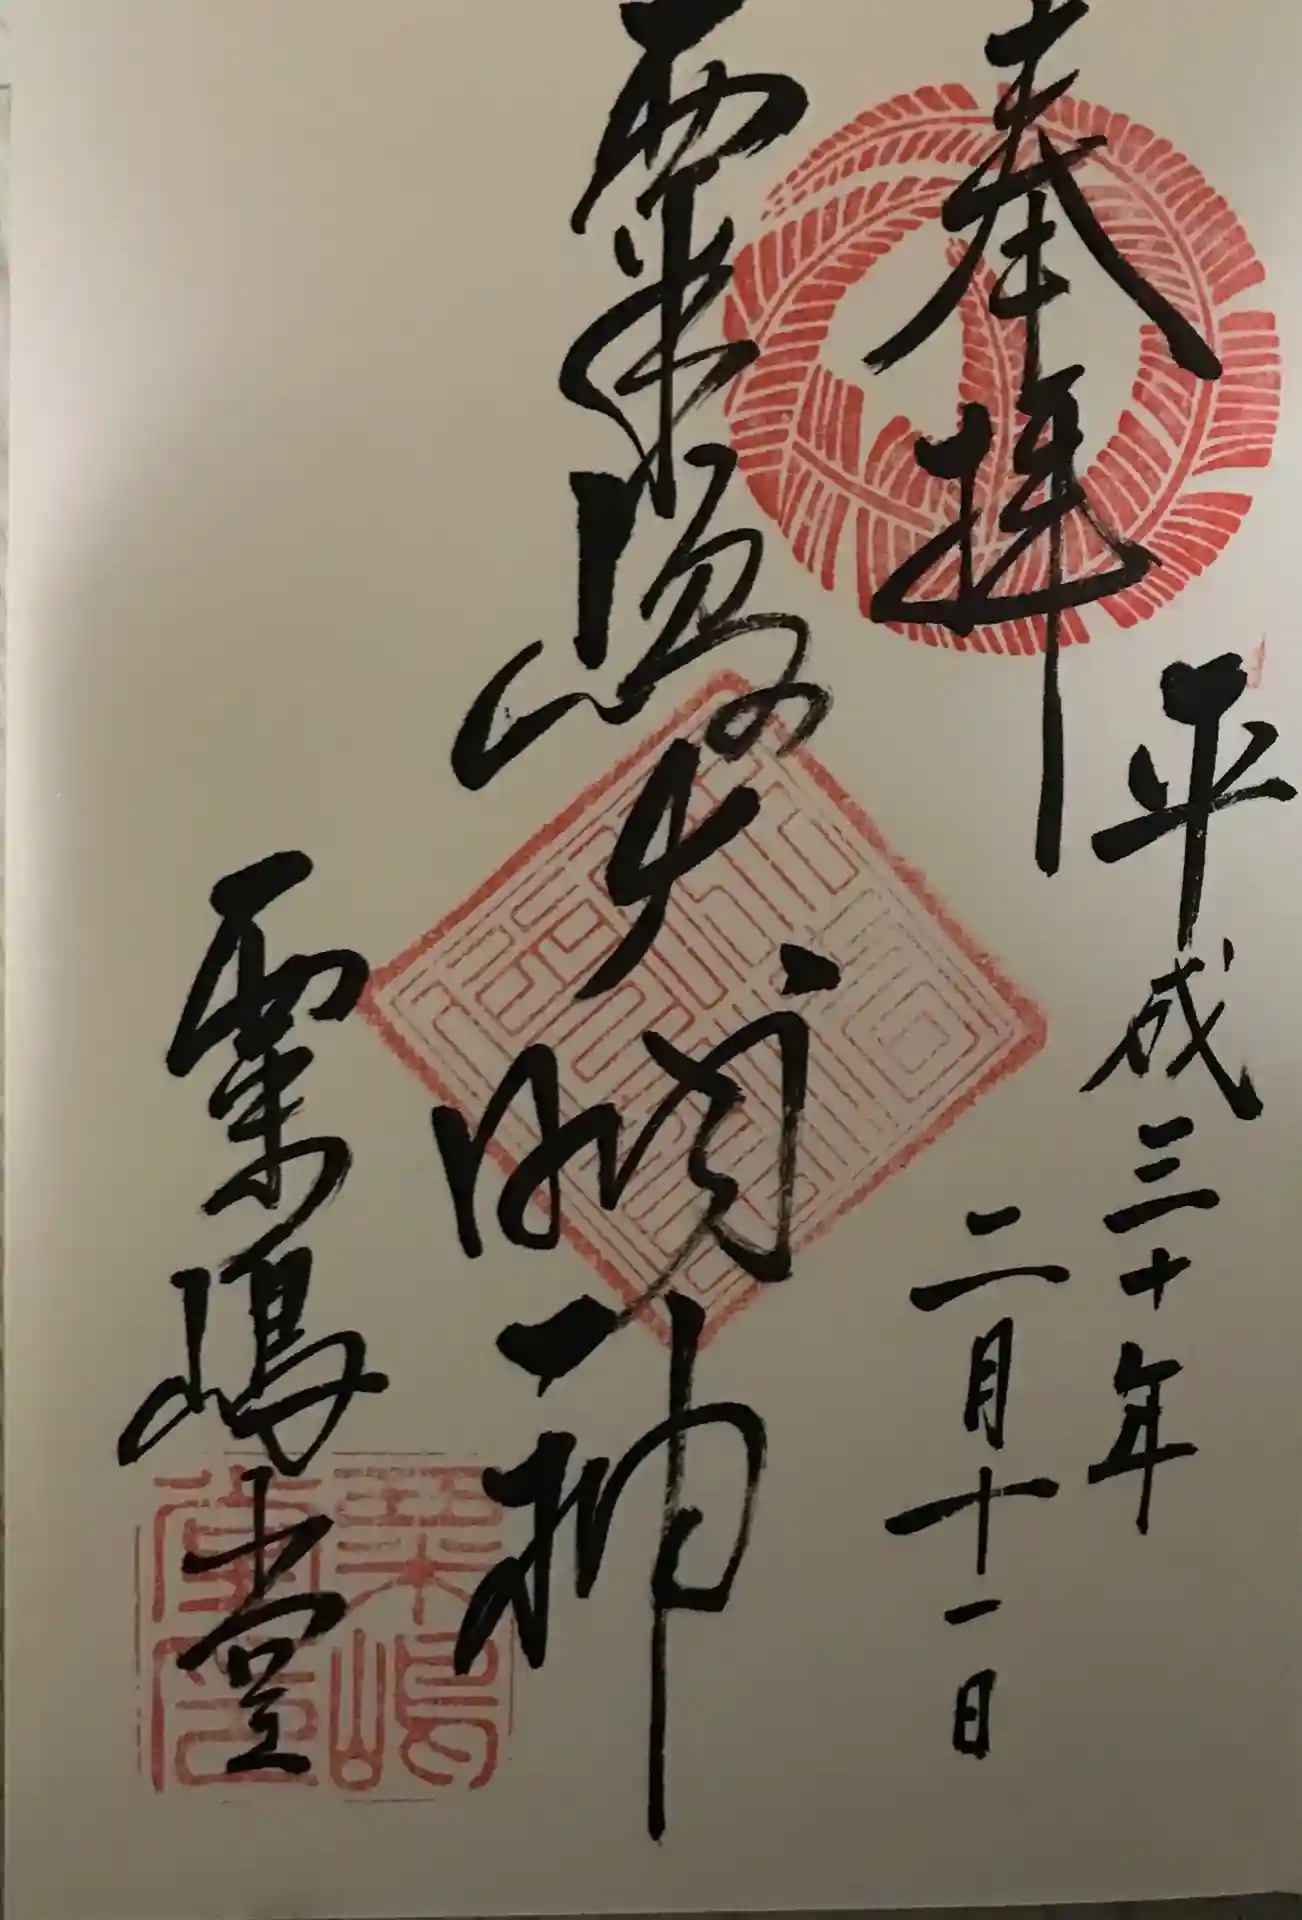 奉拝
平成三十年
二月十一日
粟嶋大明神
粟嶋堂
粟嶋
堂印